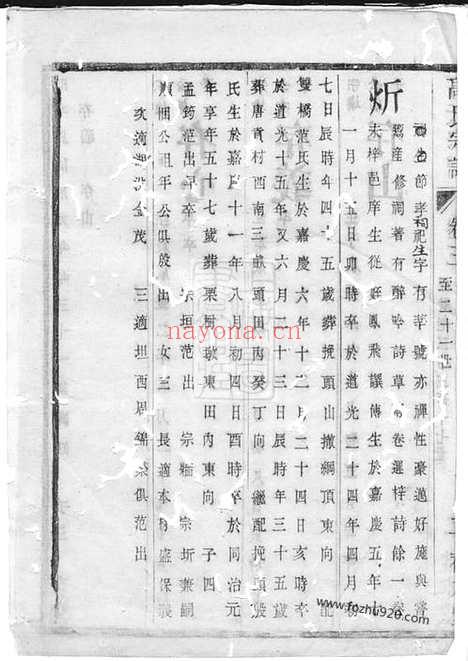 高氏宗譜 卷三 至二十一世
炘
節孝祠祀生字有莘號亦禪性豪邁好施與嘗
蠲產修祠著有醉吟詩草 卷邏梓詩餘一卷
未梓邑庠生從 鳳飛譔傳生於嘉慶五年十
一月十五日卯時卒於道光二十四年四月初
七日辰時年四十五歲葬挽頭山撤網頂東向 配
雙橋范氏生於嘉慶六年十二月二十四日 時卒
於道光十五年又六月二十三日辰時年三十五歲
葬唐貢村西南三畝頭田內癸丁向 繼配挽頭殷
氏生於嘉慶十一年八月初四日酉時卒於同治元
年享年五十七歲葬栗樹墩東田內東向 子四
孟筠范出早卒 宗垣范出 宗緬范出 宗圻兼嗣
廣梱公祖年公俱殷出 女三 長適本村盛保
次適 金茂 三適坦西周錦榮俱范出
nayona.cn
www.fozhu920.com